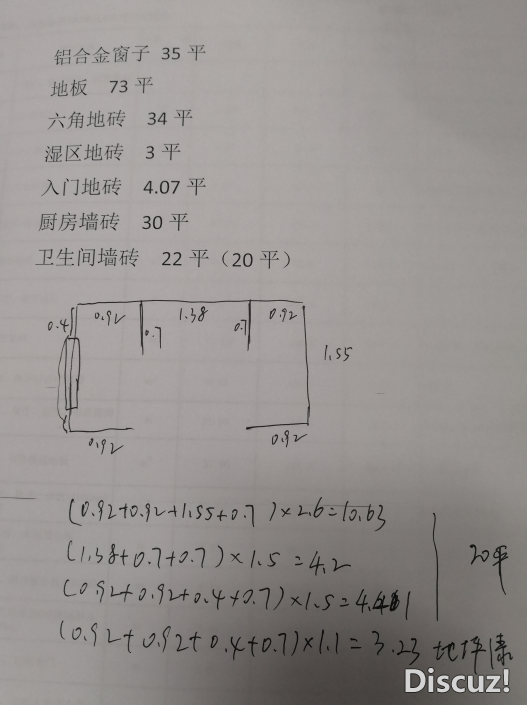 铝合金窗子 35 平
地板 73 平
六角地砖 34 平
湿区地砖 3 平
入门地砖 4.07 平
厨房墙砖 30 平
卫生间墙砖 22 平（20 平）
0.4 0.92 0.7 1.38 0.7 0.92
1.55
0.92 0.92
(0.92+0.92+1.55+0.7)×2.6=10.63
(1.38+0.7+0.7)×1.5=4.2
20平
(0.92+0.92+0.4+0.7)×1.5=
(0.92+0.92+0.4+0.7)×1.1=3.23 地坪漆
Discuz!